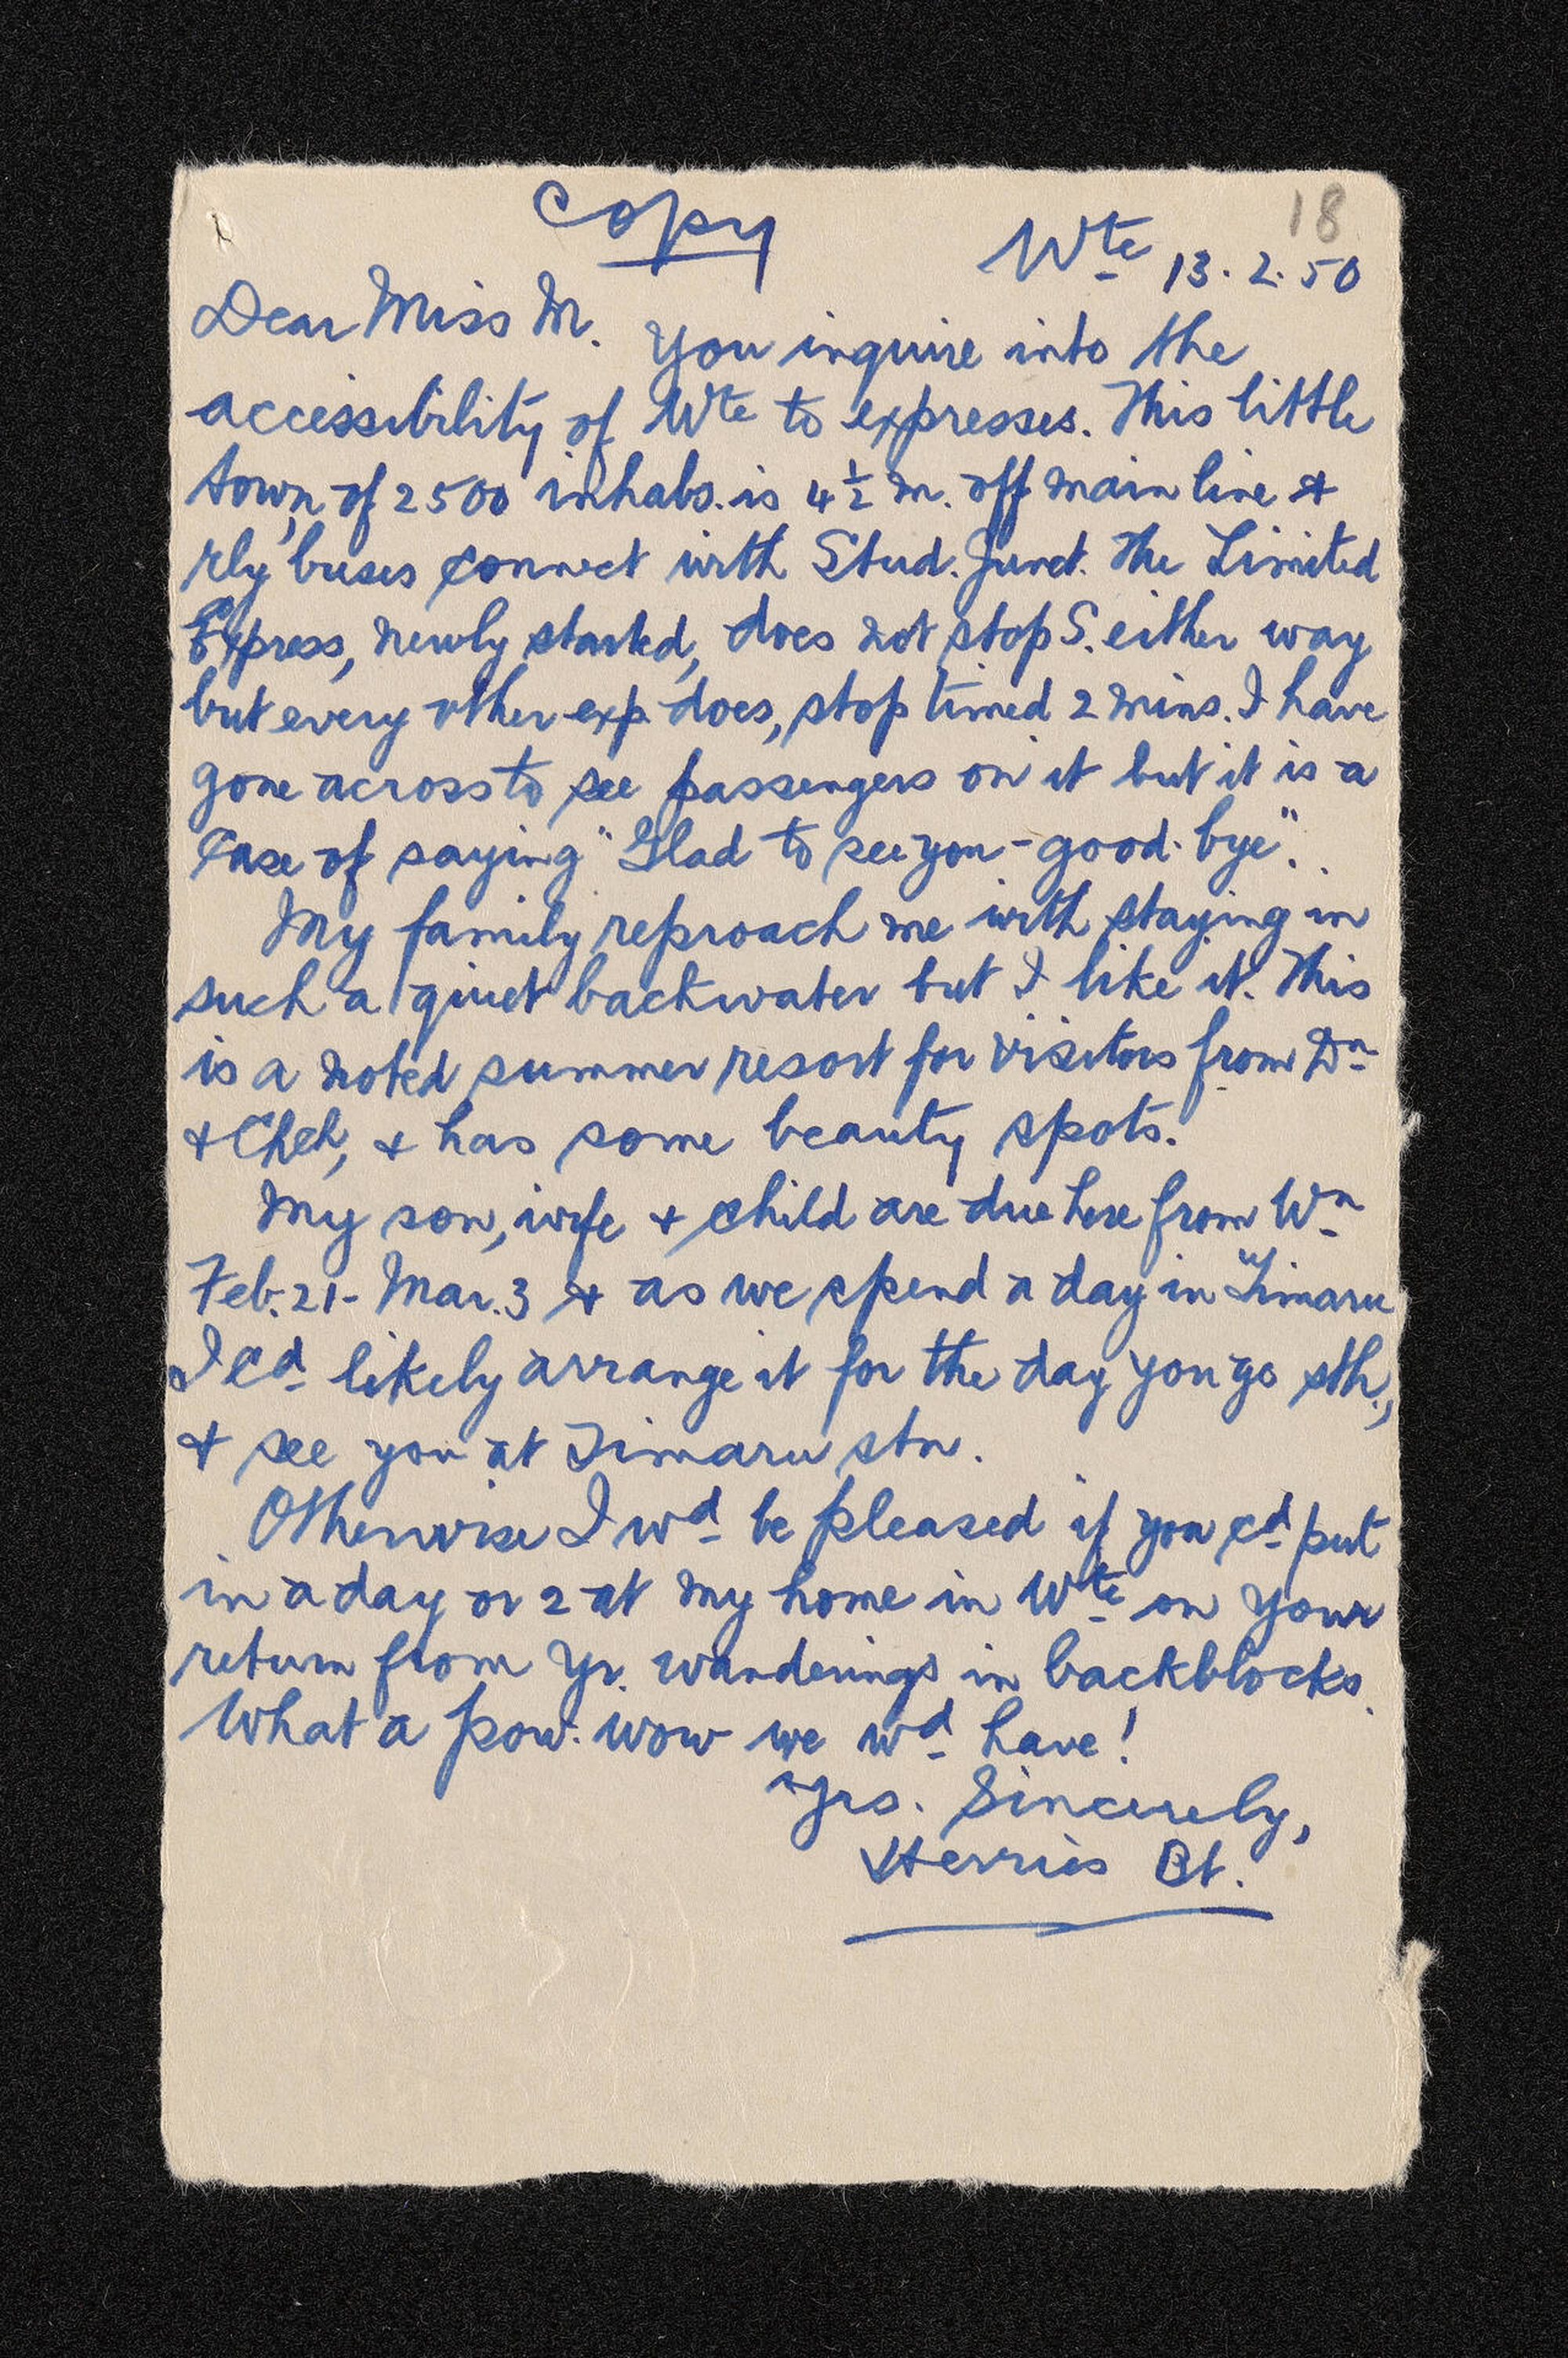 Copy
18
Wte 13.2.50
Dear Miss M. You inquire into the
accessibility of Wte to expresses. This little
town of 2500 inhabs. is 4½ m. off main line &
rly buses connect with Stud. Junct. The Limited
Express, newly started, does not stop S. either way
but every other exp. does, stop timed 2 mins. I have
gone across to see passengers on it but it is a
case of saying "Glad to see you - good-bye".
My family reproach me with staying in
such a quiet backwater but I like it. This
is a noted summer resort for visitors from Dn
& Chch, & has some beauty spots.
My son, wife & child are due here from Wn
Feb. 21 - Mar. 3 & as we spend a day in Timaru
I cd likely arrange it for the day you go sth.,
& see you at Timaru stn.
Otherwise I wd be pleased if you cd put
in a day or 2 at my home in Wte on your
return from yr. wanderings in backblocks.
What a pow-wow we wd have!
Yrs. Sincerely,
Herries Bt.